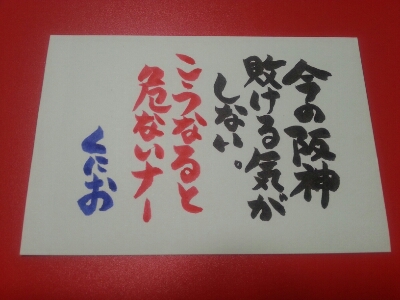 今の阪神
敗ける気が
しない。
こうなると
危ないナー
くにお